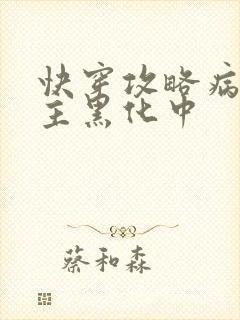 快穿攻略病
主黑化中
蔡和森